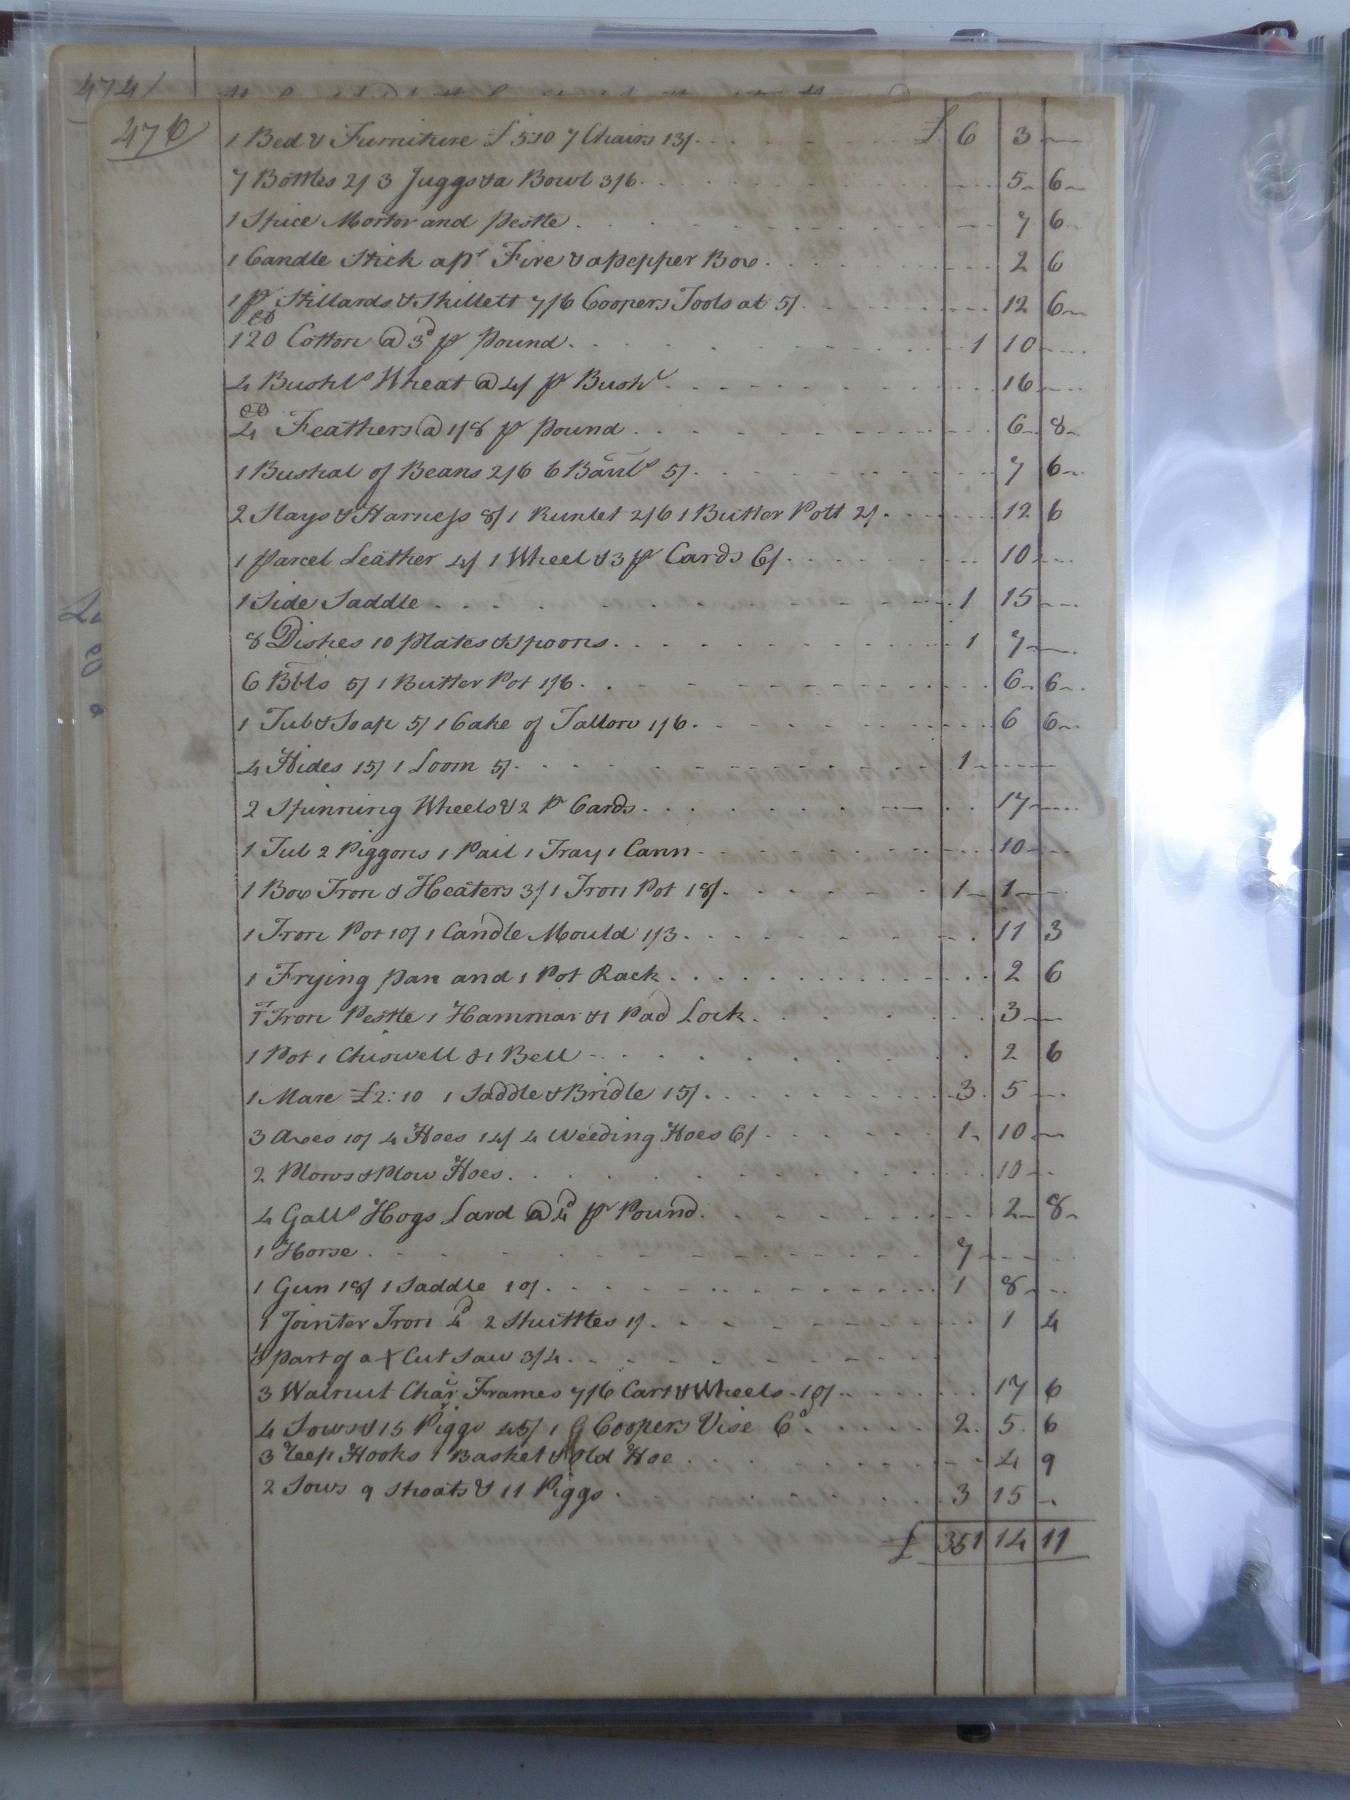 474
476
1 Bed & Furniture £5:10 7 Chairs 13/ £ 6 3
7 Bottles 2/ 3 Juggs & a Bowl 3/6 5 6
1 Spice Mortor and Pestle 7 6
1 Candle Stick a pr Fire & a pepper Box 2 6
1 pr Stillards & Skillett 7/6 Coopers Tools at 5/ 12 6
120 Cotton @ 3d pr Pound 1 10
4 Bushls Wheat @ 4/ pr Bushl 16
4 Feathers @ 1/8 pr Pound 6 8
1 Bushal of Beans 2/6 6 Barrls 5/ 7 6
2 Slays & Harness 8/ 1 Runlet 2/6 1 Butter Pott 2/ 12 6
1 parcel Leather 4/ 1 Wheel & 3 pr Cards 6/ 10
1 Side Saddle 1 15
8 Dishes 10 Plates & Spoons 1 7
6 Bbls 5/ 1 Butter Pot 1/6 6 6
1 Tub & Soap 5/ 1 Cake of Tallow 1/6 6 6
4 Hides 15/ 1 Loom 5/ 1
2 Spinning Wheels & 2 pr Cards 17
1 Tub 2 Piggons 1 Pail 1 Tray 1 Cann 10
1 Box Iron & Heaters 3/ 1 Iron Pot 18/ 1 1
1 Iron Pot 10/ 1 Candle Mould 1/3 11 3
1 Frying pan and 1 Pot Rack 2 6
1 Iron Pestle 1 Hammar & 1 Pad Lock 3
1 Pot 1 Chiswell & 1 Bell 2 6
1 Mare £2:10 1 Saddle & Bridle 15/ 3 5
3 Axes 10/ 4 Hoes 14/ 4 Weeding Hoes 6/ 1 10
2 Plows & Plow Hoes 10
4 Galls Hogs Lard @ 4d pr Pound 2 8
1 Horse 7
1 Gun 18/ 1 Saddle 10/ 1 8
1 Jointer Iron 4d 2 Shuttles 1/ 1 4
part of a X Cut Saw 3/4
3 Walnut Chair Frames 7/6 Cart & Wheels 10/ 17 6
4 Sows & 15 Piggs 45/ 1 Coopers Vise 6d 2 5 6
3 reep Hooks 1 Basket & Old Hoe 4 9
2 Sows 9 Shoats & 11 Piggs 3 15
£ 351 14 11